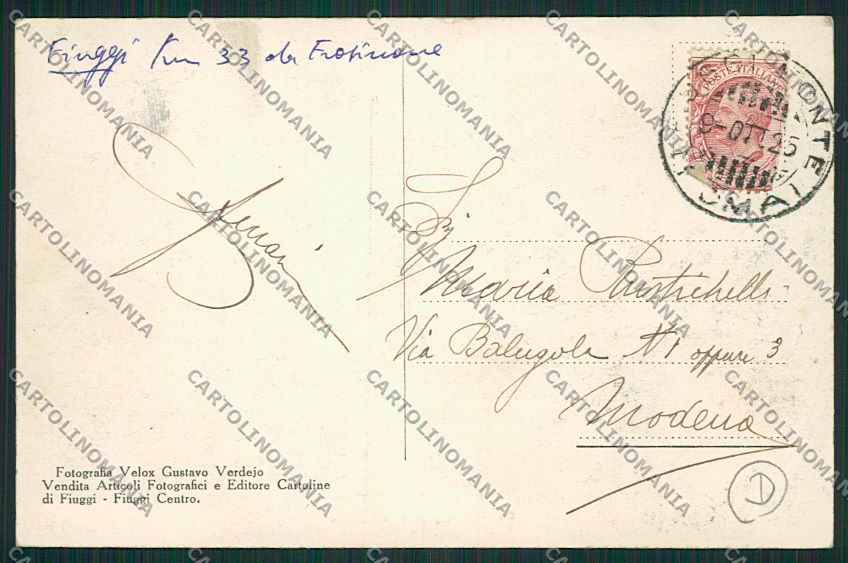 Fiuggi km 33 da Frosinone
POSTE ITALIANE
9-OTT.25
Maria
Via Balugola N1 oppure 3
Modena
Fotografia Velox Gustavo Verdejo
Vendita Articoli Fotografici e Editore Cartoline
di Fiuggi - Fiuggi Centro.
D
CARTOLINOMANIA